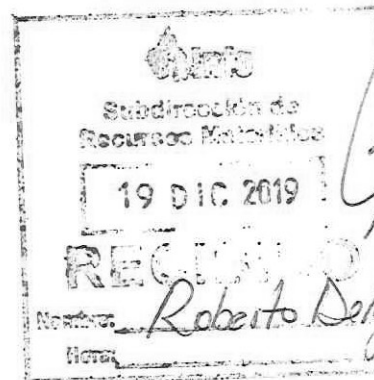 Subdirección de
Recursos Materiales
19 DIC 2019
RECIBIDO
Nombre: Roberto
Hora: